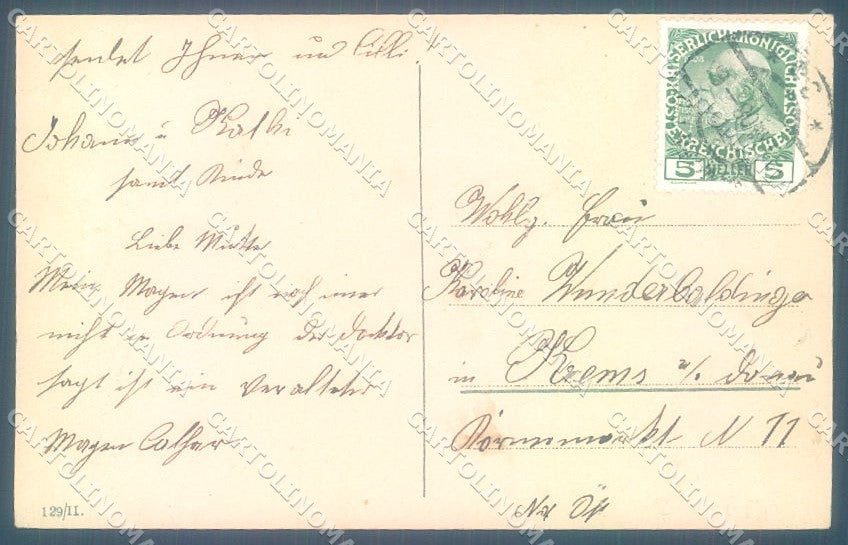 sendet Ihnen und Lilli
Johann u Kathi
samt Kinde
Liebe Mutter
Mein Magen ist noch immer
nicht in Ordnung der Doktor
sagt ist ein veralteter
Magen Cathar
129/II.
KAISERLICHE KÖNIGLICHE ÖSTERREICHISCHE POST
5 HELLER 5
Wohlg. Frau
Karoline Wunderbaldinger
in Krems a/. Donau
Körnermarkt N 11
Nd Öst
CARTOLINOMANIA